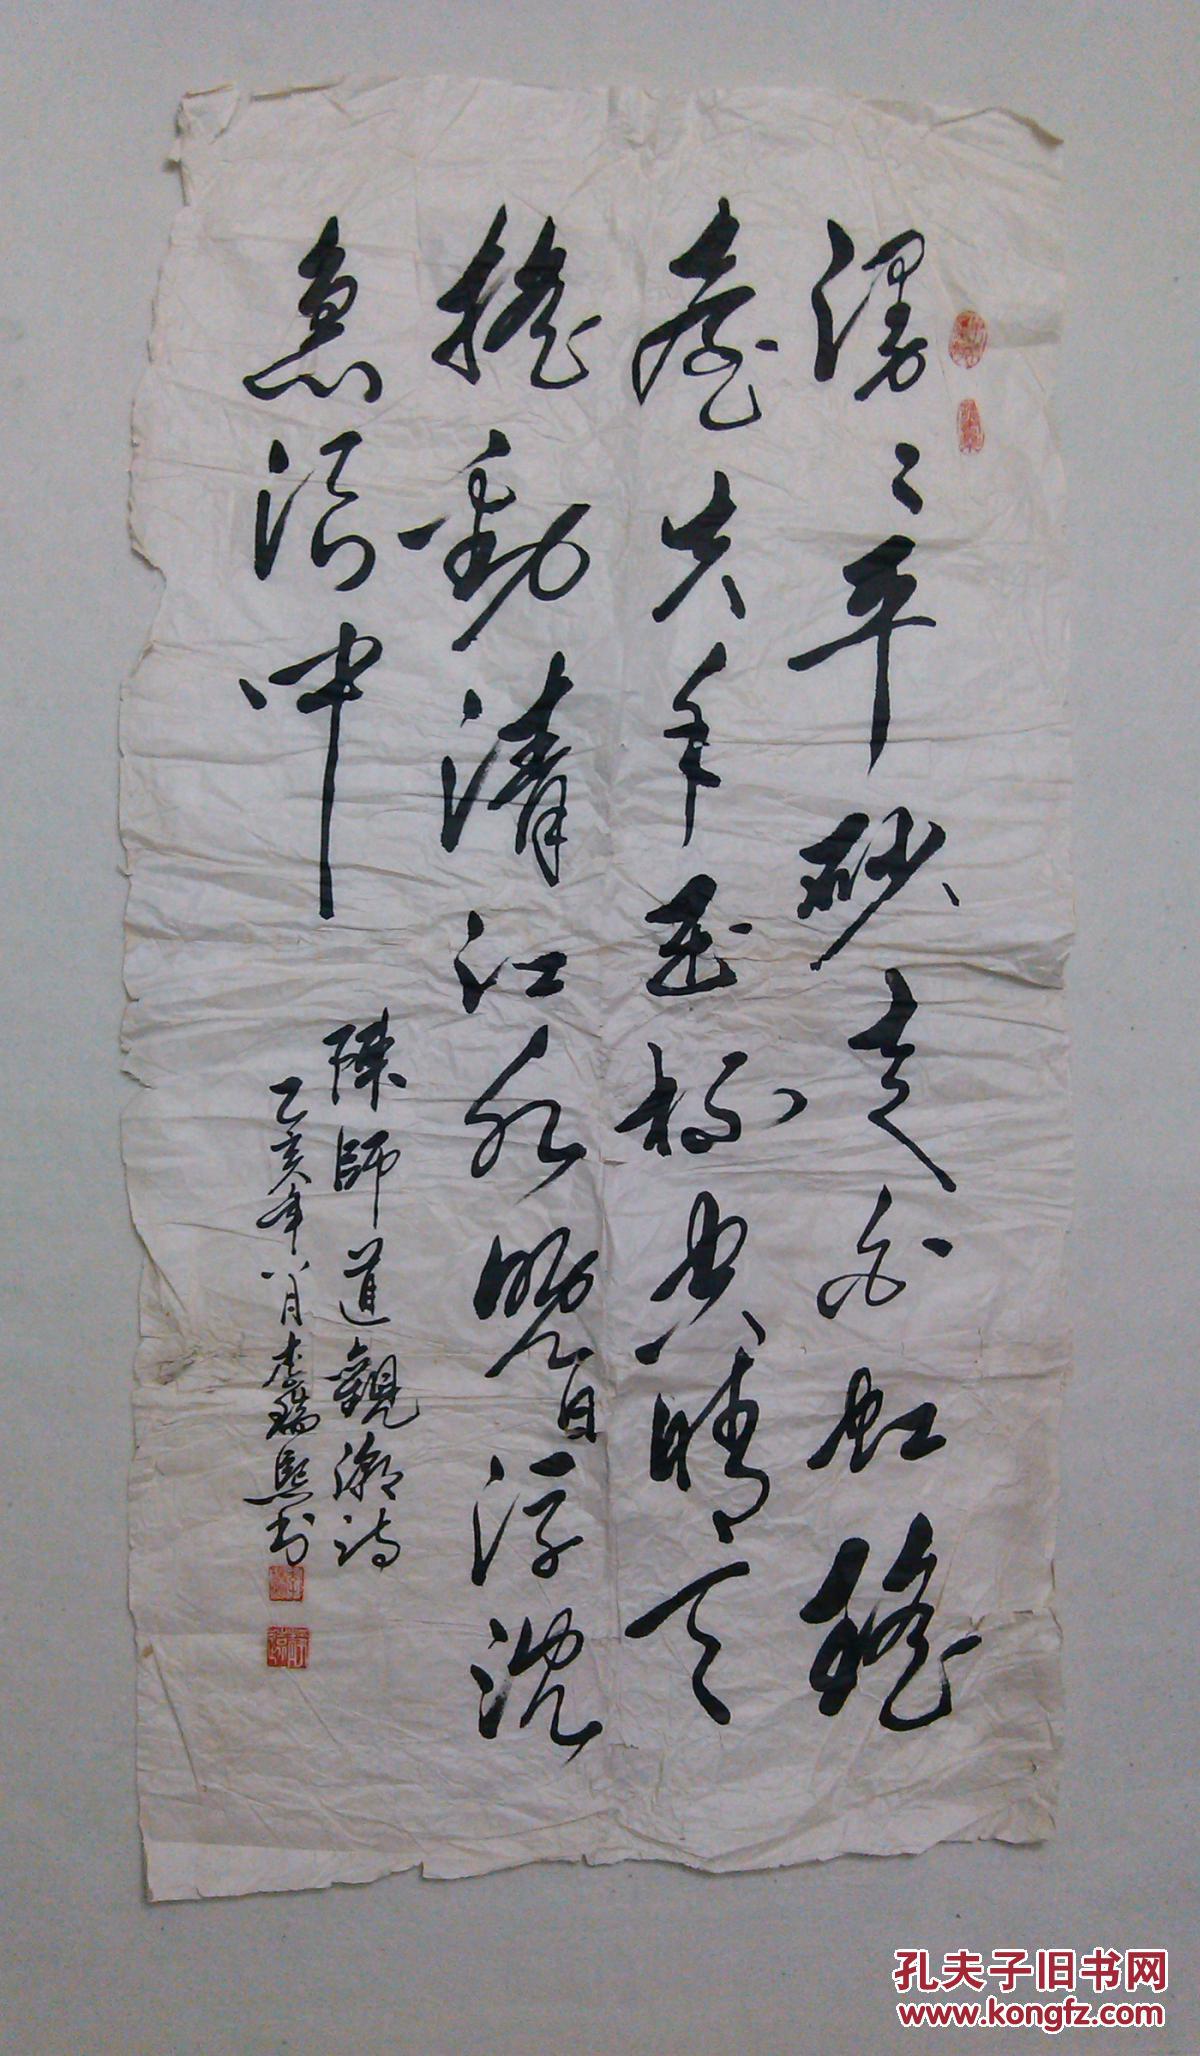 漫〻平砂走白虹瑶
臺失手玉杯空晴天
摇動清江水晚日浮沈
急浪中
陳師道觀潮诗
乙亥年八月李瑞熙书
孔夫子旧书网
www.kongfz.com